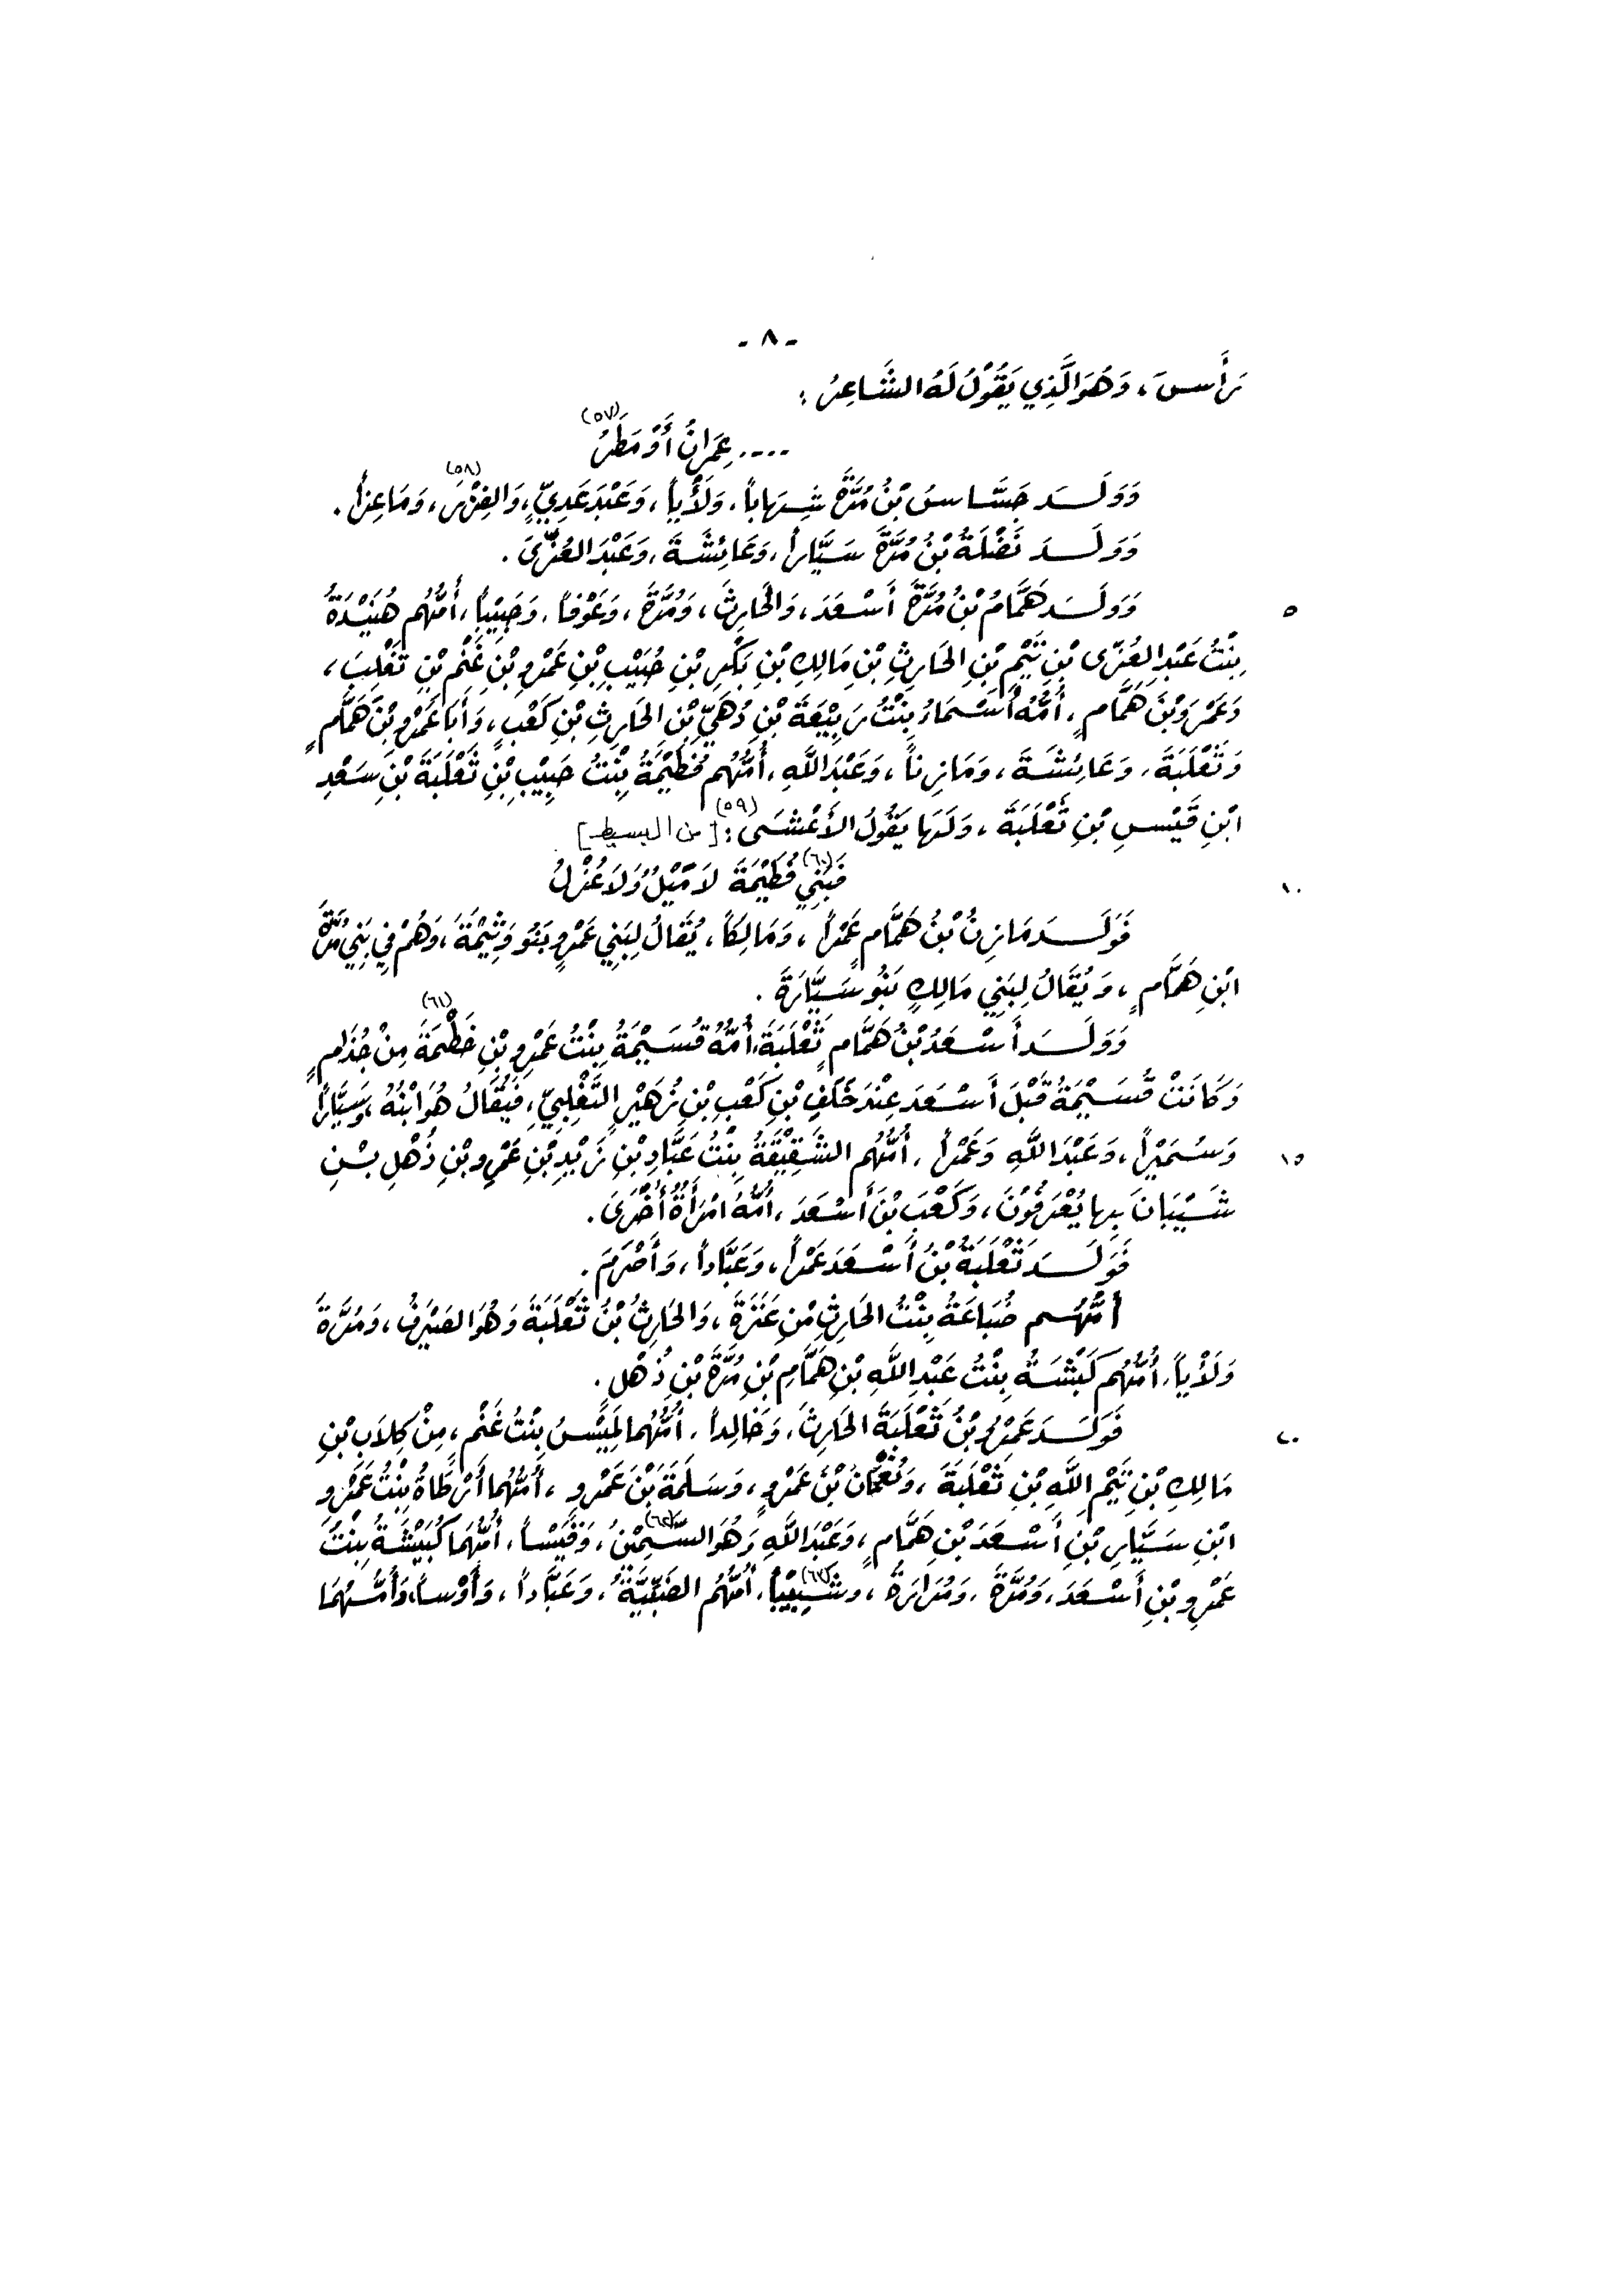 - ٨ -
رَأَسَ ، وَهُوَ الَّذِي يَقُوْلُ لَهُ الشَّاعِرُ :
.... عِمْرَانُ أَوْ مَطَرُ (٥٧)
وَوَلَــدَ جَسَّاسُ بْنُ مُرَّةَ شِهَاباً، وَلَأْياً ، وَعَبْدَ عَدِيٍّ، وَالفِزْرَ (٥٨)، وَمَاعِزاً .
وَوَلَــدَ نَضْلَةُ بْنُ مُرَّةَ سَيَّاراً ، وَعَائِشَةَ ، وَعَبْدَ العُزَّىَ .
٥ وَوَلَــدَ هَمَّامُ بْنُ مُرَّةَ أَسْعَدَ ، وَالحَارِثَ ، وَمُرَّةَ ، وَعَوْفاً ، وَحَبِيْباً ، أُمُّهُم هُنَيْدَةُ
بِنْتُ عَبْدِ العُزَّى بْنِ تَيْمِ بْنِ الحَارِثِ بْنِ مَالِكِ بْنِ بَكْرِ بْنِ حُبَيْبِ بْنِ عَمْرِو بْنِ غَنْمِ بْنِ تَغْلِبَ ،
وَعَمْرَو بْنَ هَمَّامٍ ، أُمُّهُ أَسْمَاءُ بِنْتُ رَبِيْعَةَ بْنِ دُهَيِّ بْنِ الحَارِثِ بْنِ كَعْبٍ ، وَأَبَا عَمْرِو بْنَ هَمَّامٍ
وَثَعْلَبَةَ ، وَعَائِشَةَ ، وَمَازِناً ، وَعَبْدَ اللَّهِ ، أُمُّهُم فُطَيْمَةُ بِنْتُ حَبِيْبِ بْنِ ثَعْلَبَةَ بْنِ سَعْدِ
ابْنِ قَيْسِ بْنِ ثَعْلَبَةَ ، وَلَهَا يَقُوْلُ الأَعْشَى (٥٩) : [من البسيط]
١٠ فَبَنِي (٦٠) فُطَيْمَةَ لَا مَيْلٌ وَلَا عُزْلُ
فَوَلَــدَ مَازِنُ بْنُ هَمَّامٍ عَمْراً ، وَمَالِكاً ، يُقَالُ لِبَنِي عَمْرٍو بَنُو وَثِيْمَةَ ، وَهُمْ فِي بَنِي مُرَّةَ
ابْنِ هَمَّامٍ ، وَيُقَالُ لِبَنِي مَالِكٍ بَنُو سَيَّارَةَ .
وَوَلَــدَ أَسْعَدُ بْنُ هَمَّامٍ ثَعْلَبَةَ ، أُمُّهُ قُسَيْمَةُ بِنْتُ عَمْرِو بْنِ خَطْمَةَ (٦١) مِنْ جُذَامٍ
وَكَانَتْ قُسَيْمَةُ قَبْلَ أَسْعَدَ عِنْدَ خَلَفِ بْنِ كَعْبِ بْنِ زُهَيْرٍ التَّغْلِبِيِّ ، فَيُقَالُ هُوَ ابْنُهُ ، وَسَيَّاراً
١٥ وَسُمَيْراً ، وَعَبْدَ اللَّهِ وَعَمْراً ، أُمُّهُم الشَّقِيْقَةُ بِنْتُ عَبَّادِ بْنِ زَيْدِ بْنِ عَمْرِو بْنِ ذُهْلِ بْنِ
شَيْبَانَ بِهَا يُعْرَفُوْنَ ، وَكَعْبَ بْنَ أَسْعَدَ ، أُمُّهُ امْرَأَةٌ أُخْرَىَ .
فَوَلَــدَ ثَعْلَبَةُ بْنُ أَسْعَدَ عَمْراً ، وَعَبَّاداً ، وَأَصْرَمَ .
أُمُّهُــم ضُبَاعَةُ بِنْتُ الحَارِثِ مْنِ عَنَزَةَ ، وَالحَارِثُ بْنُ ثَعْلَبَةَ وَهُوَ الصَيْرَفُ ، وَمُرَّةَ
وَلَأْياً ، أُمُّهُم كَبْشَةُ بِنْتُ عَبْدِ اللَّهِ بْنِ هَمَّامِ بْنِ مُرَّةَ بْنِ ذُهْلٍ .
٢٠ فَوَلَــدَ عَمْرُو بْنُ ثَعْلَبَةَ الحَارِثَ ، وَخَالِداً ، أُمُّهُمَا لَمِيْسُ بِنْتُ غَنْمٍ ، مِنْ كِلَابِ بْنِ
مَالِكِ بْنِ تَيْمِ اللَّهِ بْنِ ثَعْلَبَةَ ، وَنُعْمَانَ بْنَ عَمْرٍو ، وَسَلَمَةَ بْنَ عَمْرٍو ، أُمُّهُمَا أَرْطَاةُ بِنْتُ عَمْرِو
ابْنِ سَيَّارِ بْنِ أَسْعَدَ بْنِ هَمَّامٍ ، وَعَبْدَ اللَّهِ وَهُوَ السَّمِيْنُ (٦٢)، وَقَيْساً ، أُمُّهُمَا كُبَيْشَةُ بِنْتُ
عَمْرِو بْنِ أَسْعَدَ ، وَمُرَّةَ ، وَمُرَارَةَ ، وَشَبِيْباً (٦٣)، أُمُّهُم الضَبِّيَّةُ ، وَعَبَّاداً ، وَأَوْساً، وَأُمُّهُمَا